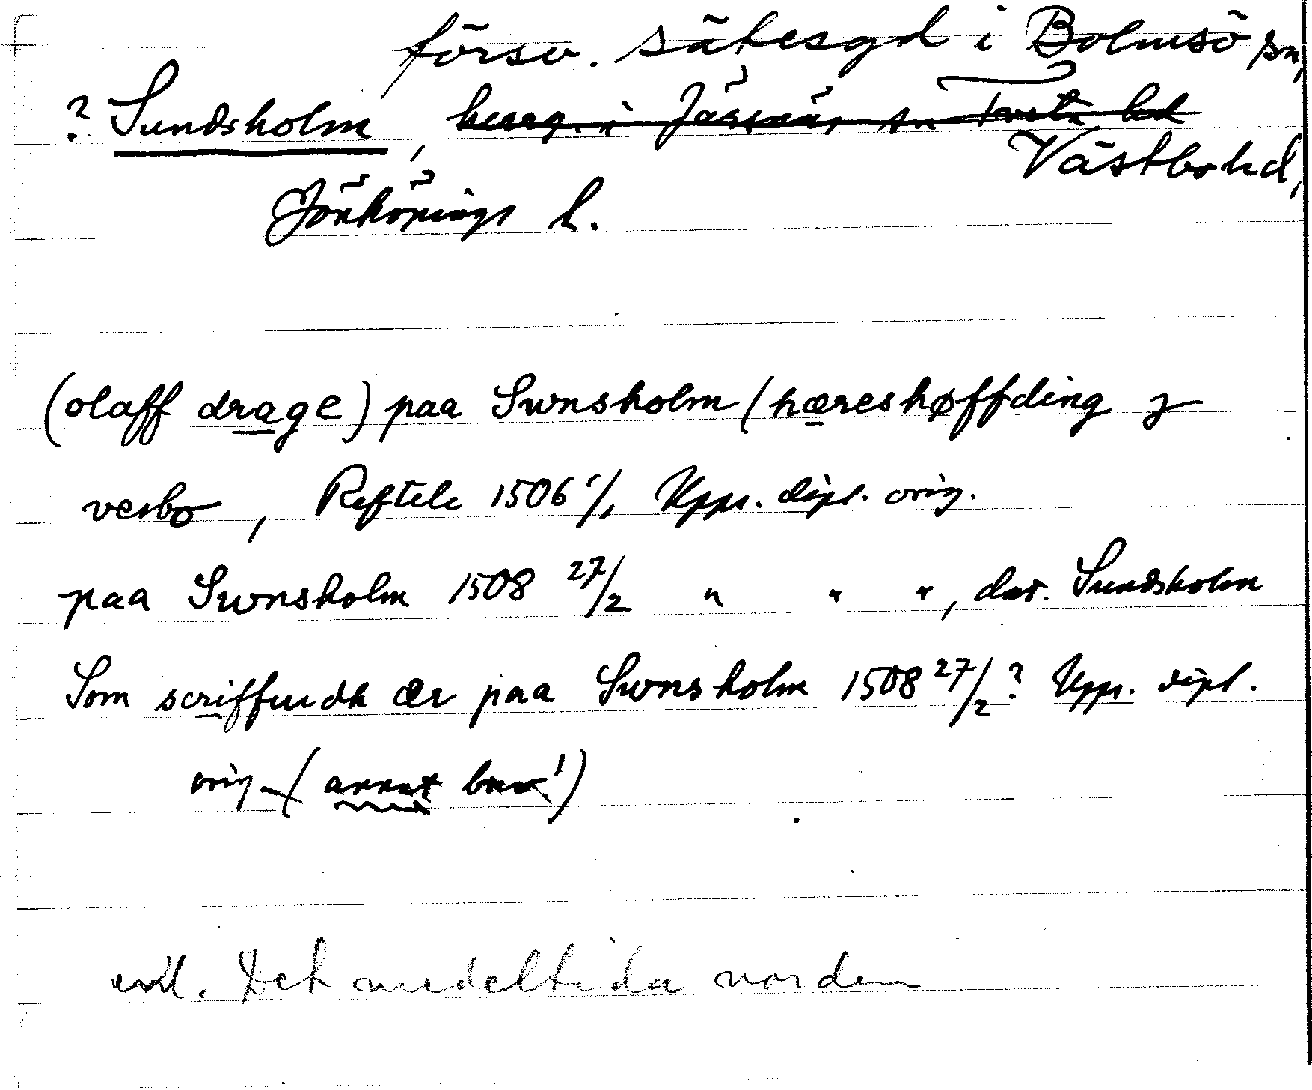 försv. sätesgd i Bolmsö sn,
? Sundsholm, herrg. i Järsnäs sn Tveta hd
Västbo hd,
Jönköpings l.
(olaff drage) paa Swnsholm (hæreshøffding j
vesbo, Reftele 1506 1/1 Upps. dipl. orig.
paa Swnsholm 1508 27/2 " " ", dat. Sundsholm
Som scriffuidh ær paa Swnsholm 1508 27/2? Upps. dipl.
orig. (annat brev!)
enl. Det medeltida norden